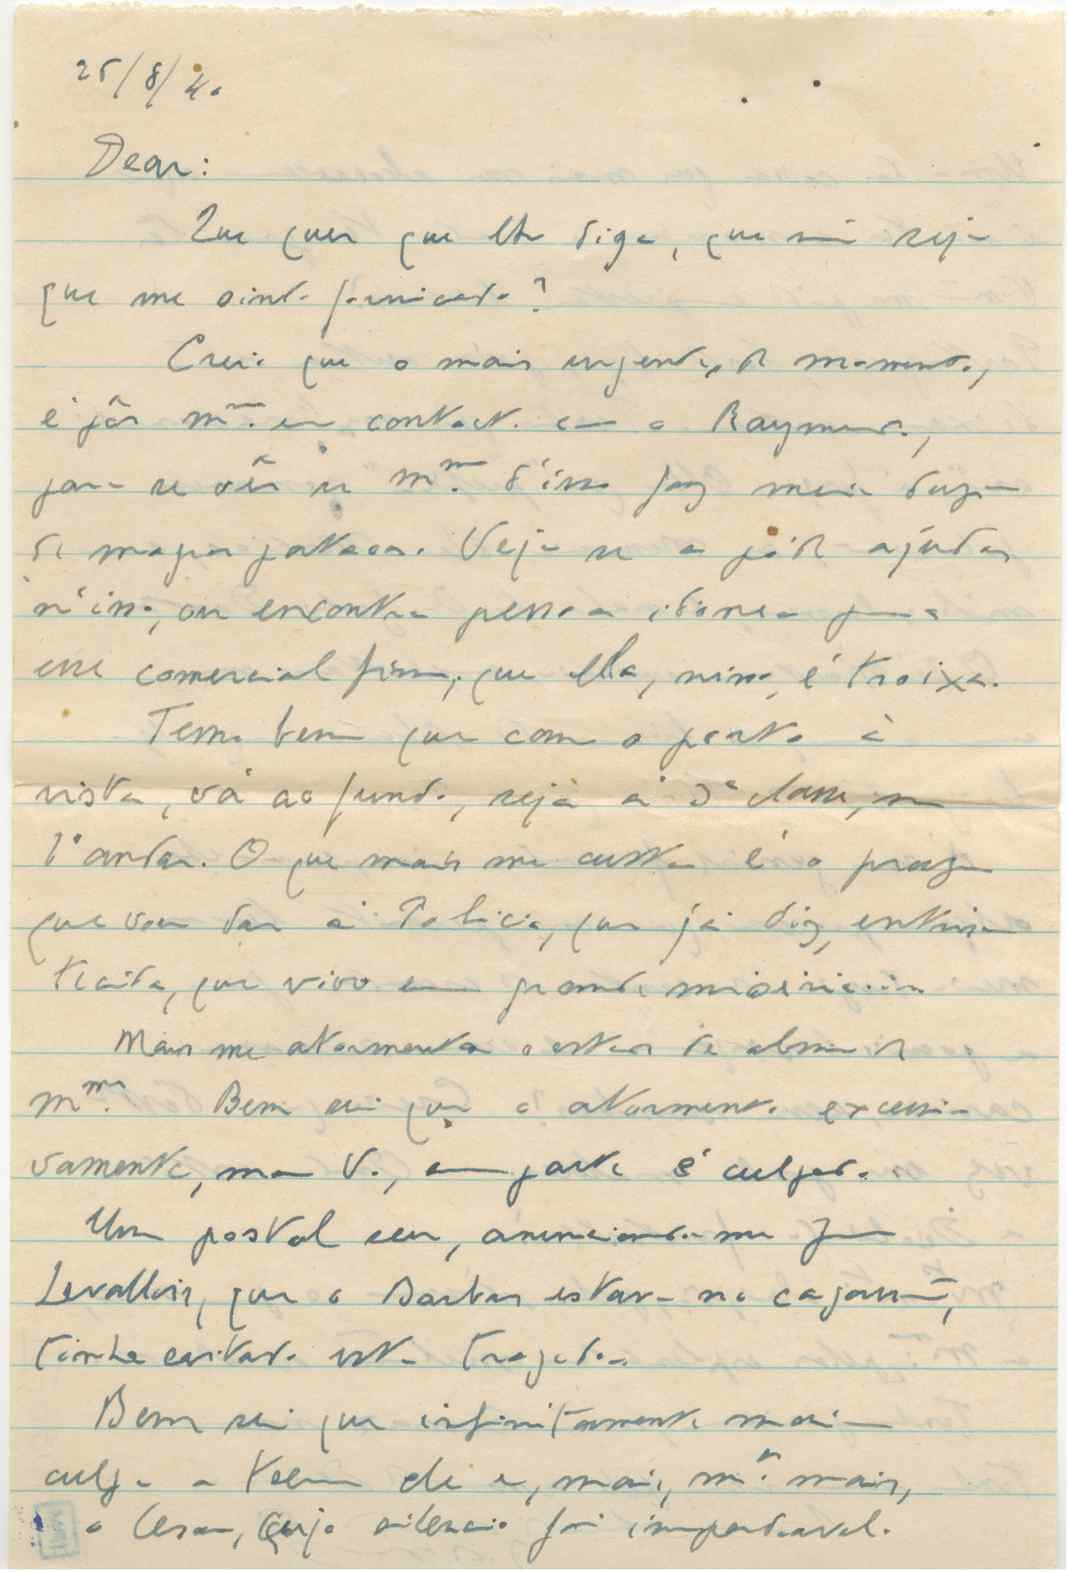 25/8/40
Dear:
Que quer que lhe diga, que não seja
que me sinto fornicado?
Creio que o mais urgente, de momento,
é pôr Mme. em contacto com o Raymundo,
para se vêr se Mme. d'isso faz meia duzia
de magras patacas. Veja se a póde ajudar
n'isso, ou encontra pessoa idonea para
esse comercial fim, que ella, nisso, é troixa.
Temo bem que com o porto á
vista, vá ao fundo, seja á 3ª classe, no
1º andar. O que mais me custa é o prazer
que vou dar á Policia, que já diz,
que vivo em grande
Mais me atormenta o estar de
Mme. Bem sei que o atormento excessi-
vamente, mas V., em parte é culpado.
Um postal seu, anunciando-me para
Levallois, que o estava no
tinha evitado esta tragedia.
Bem sei que infinitamente mais
culpa a teem e, mais, mto. mais,
o Cesar, cujo silencio foi imperdoavel.